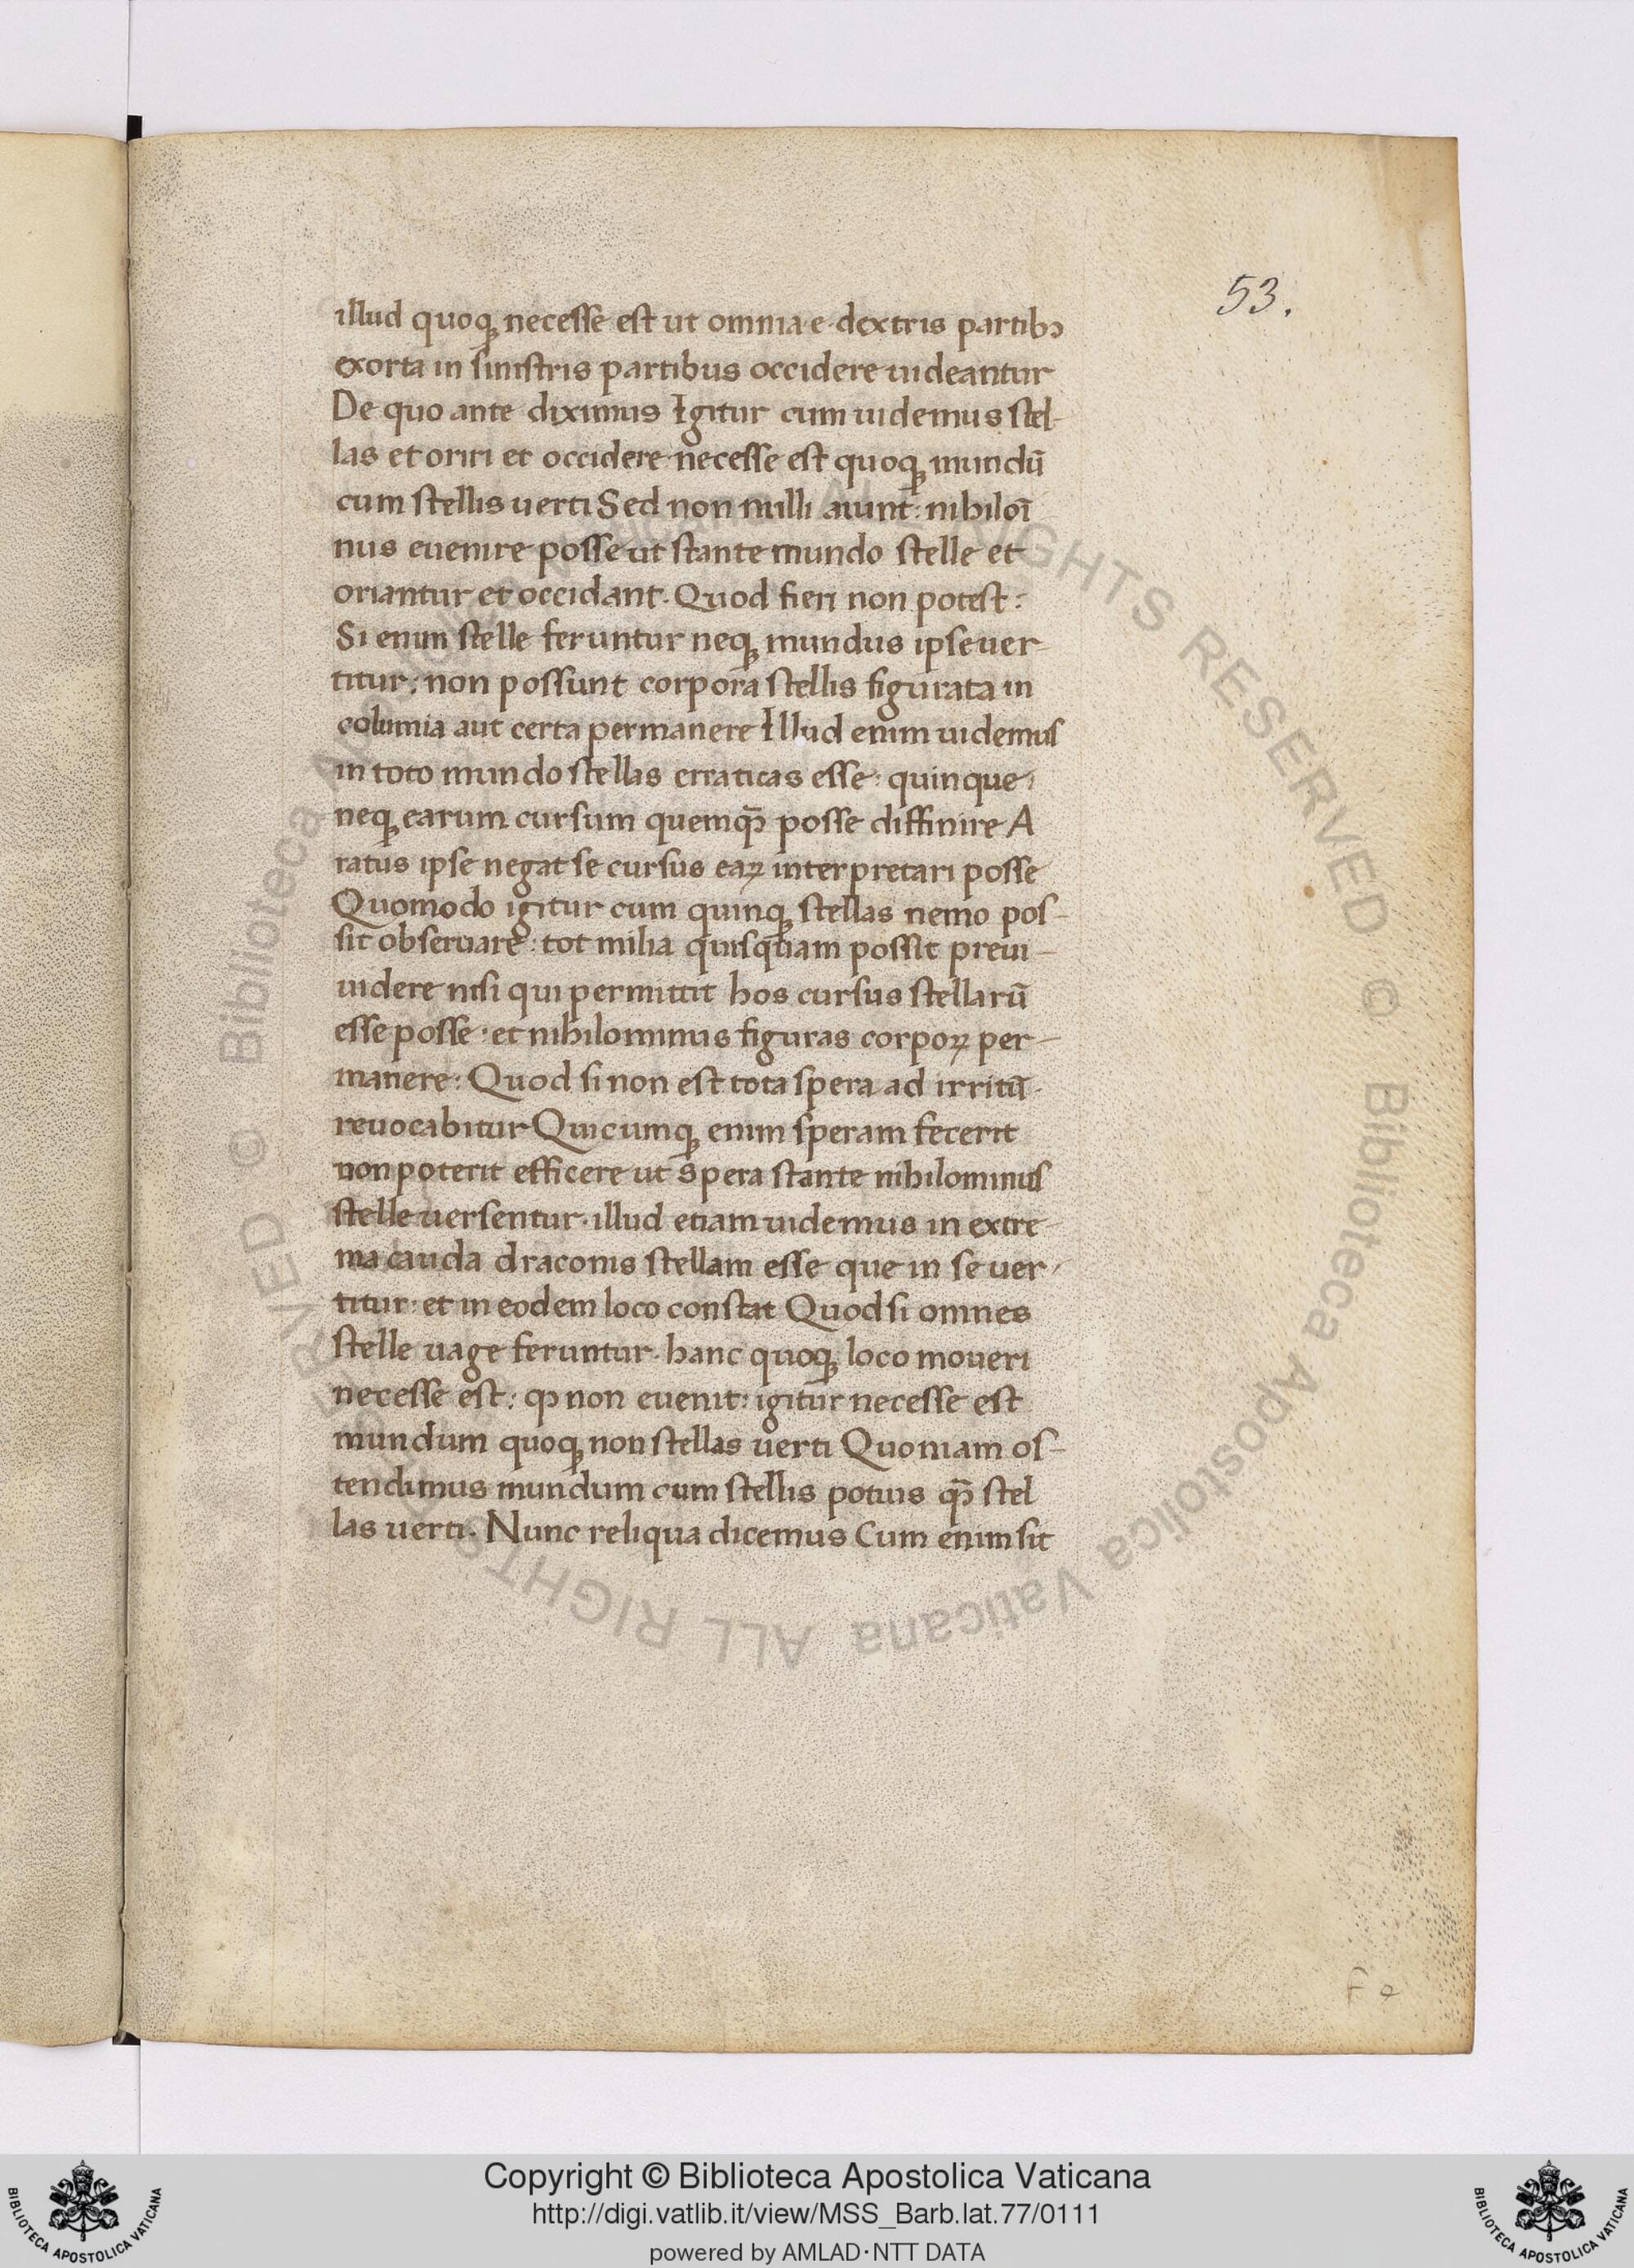 53.
illud quoqꝫ necesse est ut omnia e dextris partibꝰ
exorta in sinistris partibus occidere uideantur
De quo ante diximus Igitur cum uidemus stel-
las et oriri et occidere necesse est quoqꝫ mundū
cum stellis uerti Sed non nulli aiunt: nihiloī
nus euenire posse ut stante mundo stelle et
oriantur et occidant. Quod fieri non potest:
Si enim stelle feruntur neqꝫ mundus ipse uer-
titur: non possunt corpora stellis figurata in
columia aut certa permanere Illud enim uidemus
in toto mundo stellas erraticas esse: quinque
neqꝫ earum cursum quemqꝫ̄ posse diffinire A
ratus ipse negat se cursus eaꝝ interpretari posse
Quomodo igitur cum quinqꝫ stellas nemo pos-
sit obseruare: tot milia quisquam possit preui-
uidere nisi qui permittit hos cursus stellarū
esse posse. et nihilominus figuras corpoꝝ per-
manere: Quod si non est tota spera ad irritū
reuocabitur Quicumqꝫ enim speram fecerit
non poterit efficere ut spera stante nihilominus
stelle uersentur. illud etiam uidemus in extre-
ma cauda draconis stellam esse que in se uer-
titur: et in eodem loco constat Quod si omnes
stelle uage feruntur. hanc quoqꝫ loco moueri
necesse est: ꝙ non euenit: igitur necesse est
mundum quoqꝫ non stellas uerti Quoniam os-
tendimus mundum cum stellis potius qꝫ̄ stel
las uerti. Nunc reliqua dicemus Cum enim sit
© Biblioteca Apostolica Vaticana ALL RIGHTS RESERVED © Biblioteca Apostolica Vaticana ALL RIGHTS RESERVED
Copyright © Biblioteca Apostolica Vaticana
http://digi.vatlib.it/view/MSS_Barb.lat.77/0111
powered by AMLAD·NTT DATA
BIBLIOTECA APOSTOLICA VATICANA
BIBLIOTECA APOSTOLICA VATICANA